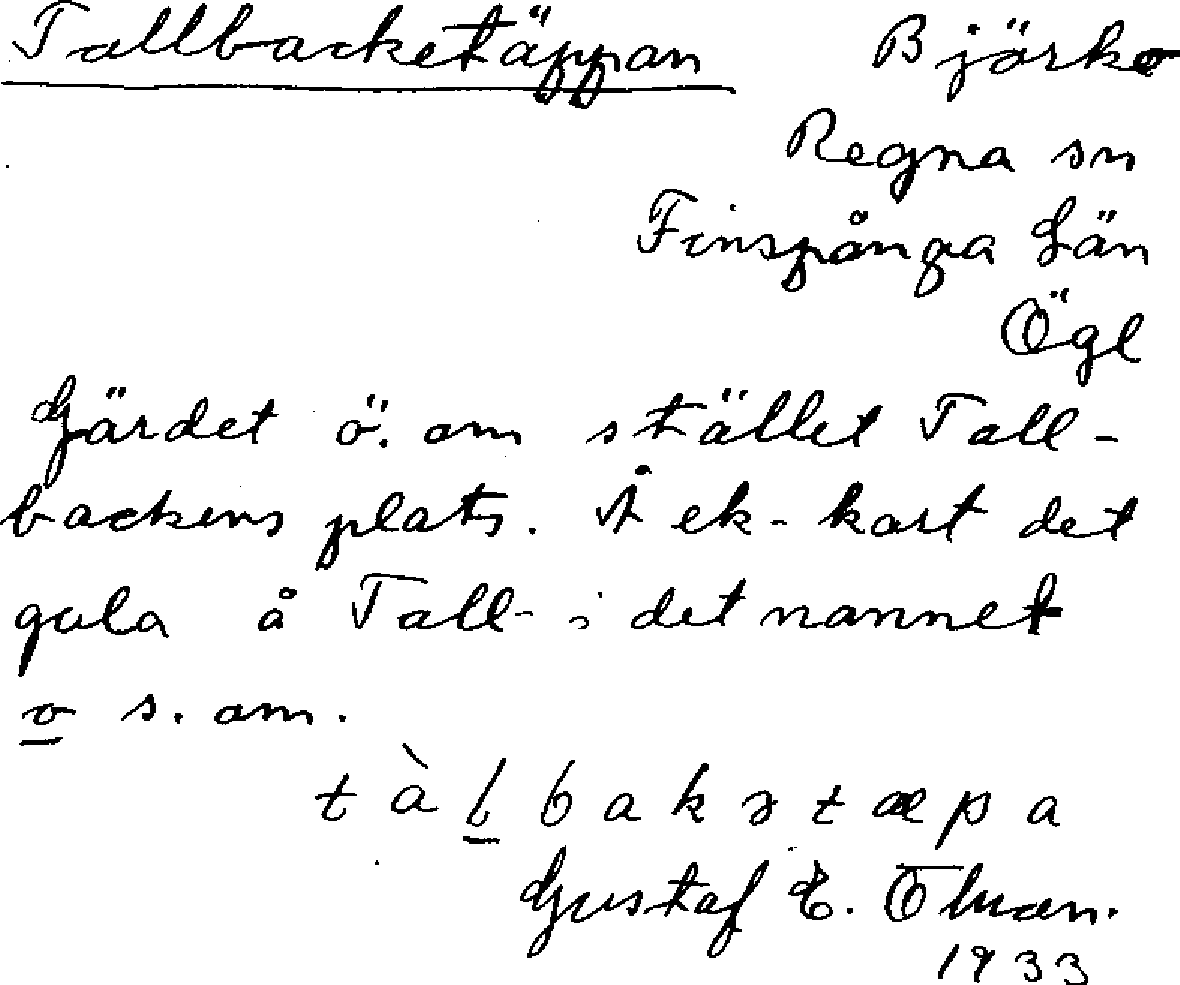 Tallbacketäppan Björke
Regna sn
Finspånga Län
Ögl
Gärdet ö. om stället Tall-
backens plats. Å ek-kart det
gula å Tall- i det namnet
o s. om.
tàlbakətæpa
Gustaf E.
1933